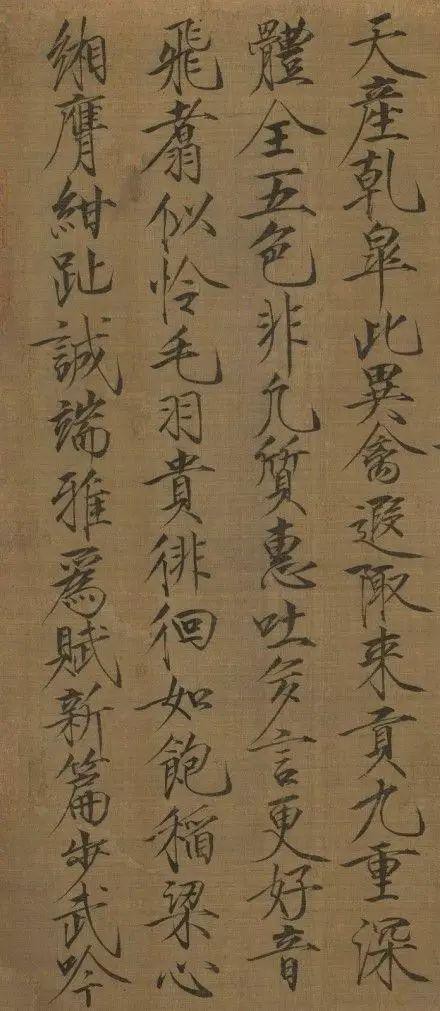 天產乹皐此異禽遐陬来貢九重深
體全五色非凢質惠吐多言更好音
飛翥似怜毛羽貴徘徊如飽稻粱心
緗膺紺趾誠端雅爲賦新篇步武吟